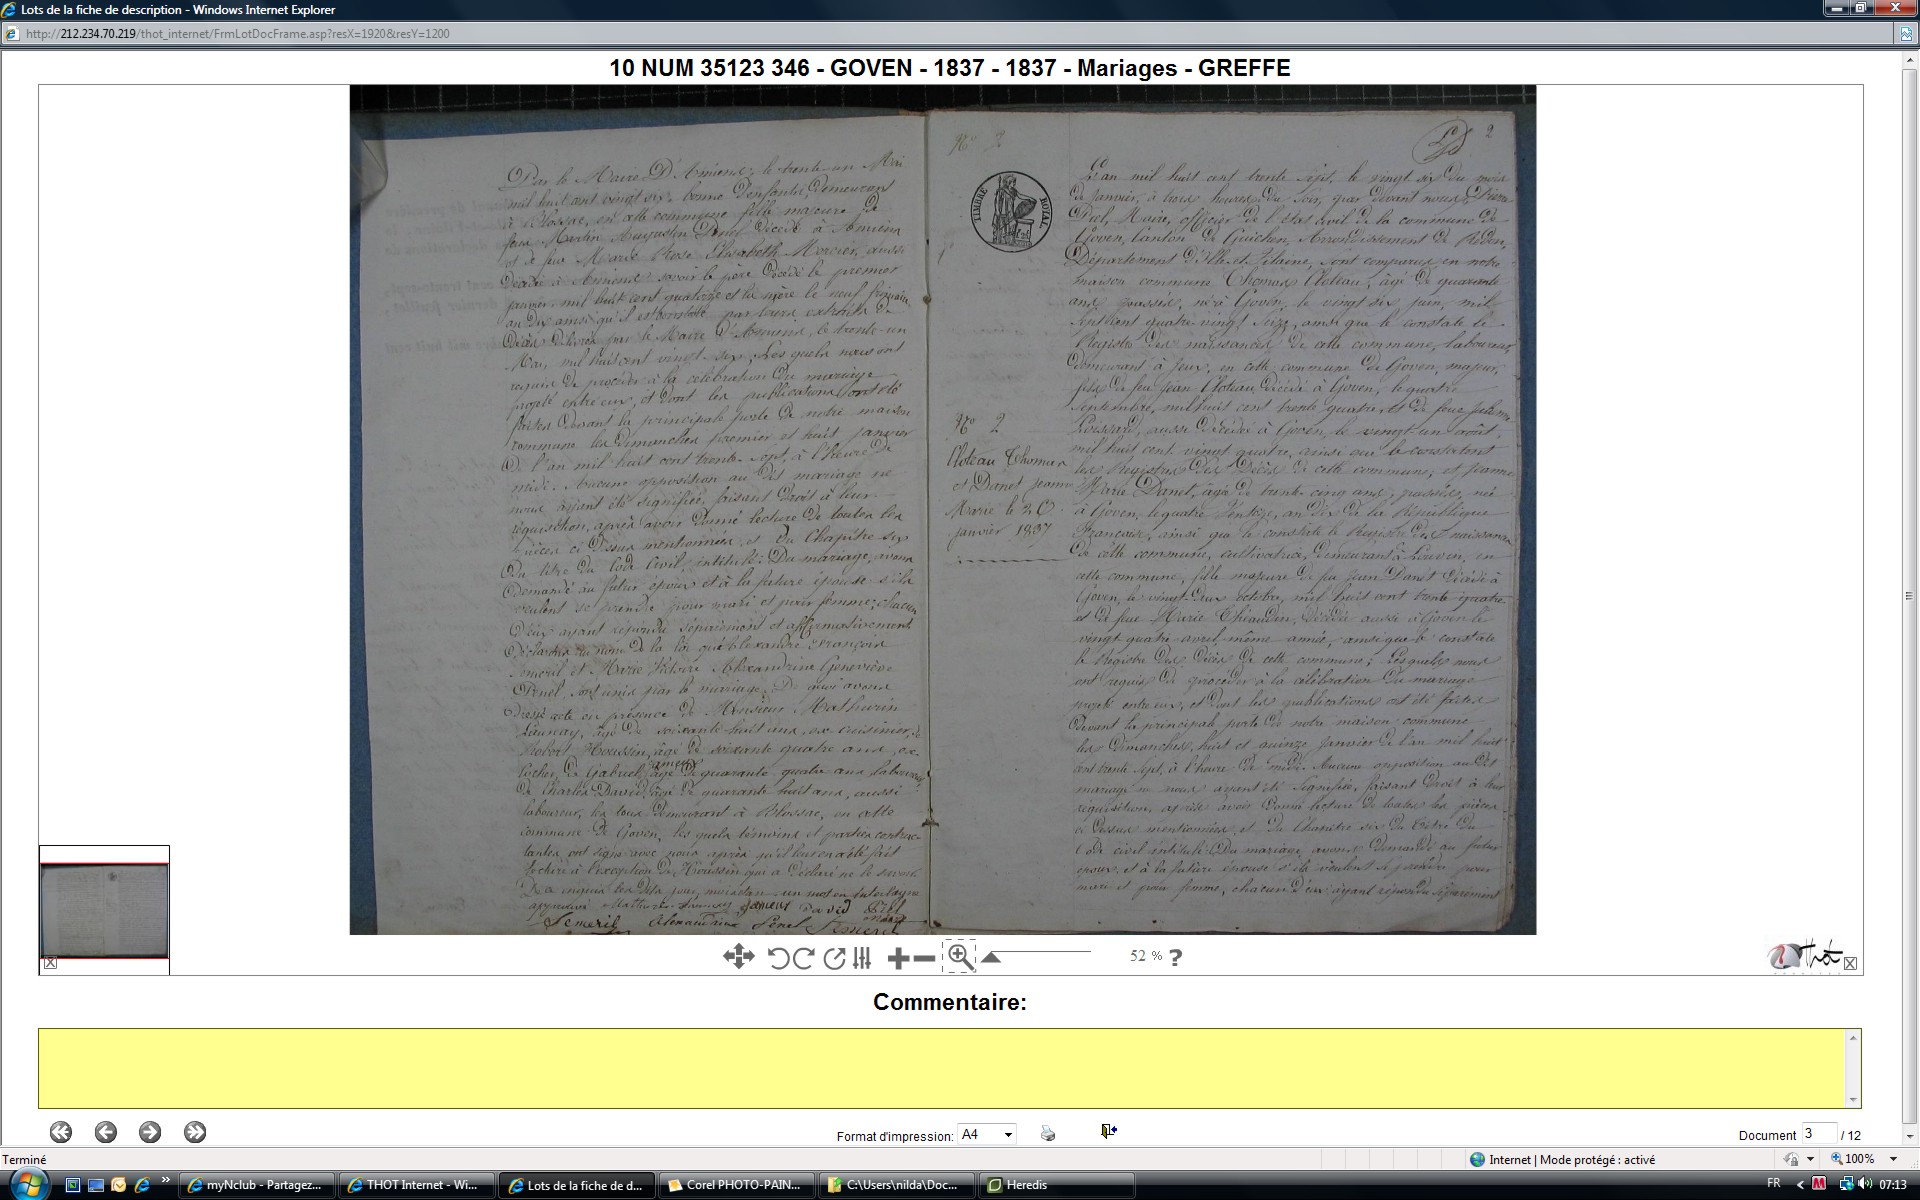 Lots de la fiche de description - Windows Internet Explorer
http://212.234.70.219/thot_internet/FrmLotDocFrame.asp?resX=1920&resY=1200
10 NUM 35123 346 - GOVEN - 1837 - 1837 - Mariages - GREFFE
Par le Maire D'Amiens, le trente-un Mai
mil huit cent vingt six, bonne d'enfants, demeurant
à Blossac, en cette commune fille majeure de
feu Martin Augustin Penel décédé à Amiens
et de feue Marie Rose Elisabeth Mercier, aussi
décédée à Amiens savoir le père décédé le premier
janvier mil huit cent quatorze et la mère le neuf frimaire
an dix ainsi qu'il est constaté par leurs extraits de
décès délivrés par le Maire d'Amiens, le trente-un
Mai, mil huit cent vingt-six; Lesquels nous ont
requis de procéder à la célébration du mariage
projeté entre eux, et dont les publications ont été
faites devant la principale porte de notre maison
commune les dimanches premier et huit janvier
de l'an mil huit cent trente-sept, à l'heure de
midi. Aucune opposition au dit mariage ne
nous ayant été signifiée, faisant droit à leur
réquisition, après avoir donné lecture de toutes les
pièces ci dessus mentionnées et du Chapitre six
du titre du Code Civil intitulé Du mariage, avons
demandé au futur époux et à la future épouse s'ils
veulent se prendre pour mari et pour femme; chacun
d'eux ayant répondu séparément et affirmativement
déclarons au nom de la loi que Alexandre François
Semeril et Marie Victoire Alexandrine Geneviève
Penel, sont unis par le mariage. De quoi avons
dressé acte en présence de Monsieur Mathurin
Launay, âgé de soixante huit ans, ex cuisinier,
Robert Houssin, âgé de soixante quatre ans, ex-
cocher, de Gabriel Jameux âgé de quarante-quatre ans laboureur,
de Charles David, âgé de quarante huit ans, aussi
laboureur, les tous demeurant à Blossac, en cette
commune de Goven, les quels témoins et parties contrac-
tantes ont signé avec nous après qu'il leur en a été fait
lecture à l'exception de Houssin qui a déclaré ne le savoir
un mot en interligne
approuvé Jameux David Piel
Semeril Alexandrine Penel Semeril
N° 2
2
TIMBRE ROYAL
N° 2
Ploteau Thomas
et Danet Jeanne
Marie le 26
janvier 1837
L'an mil huit cent trente sept, le vingt six du mois
de Janvier, à trois heures du soir, par devant nous Pierre
Piel, Maire, officier de l'état civil de la commune de
Goven, Canton de Guichen, Arrondissement de Redon,
Département d'Ille et Vilaine, sont comparus en notre
maison commune Thomas Ploteau, âgé de quarante
ans passés, né à Goven, le vingt six juin, mil
sept cent quatre vingt seize, ainsi que le constate le
Registre des naissances de cette commune, laboureur,
demeurant à en cette commune de Goven, majeur,
fils de feu Jean Ploteau décédé à Goven, le quatre
septembre, mil huit cent trente quatre, et de feue Julienne
aussi décédée à Goven, le vingt-un août,
mil huit cent vingt quatre, ainsi que le constatent
les Registres des Décès de cette commune; et Jeanne
Marie Danet, âgée de trente cinq ans, passés, née
à Goven, le quatre Ventôse, an dix de la République
Française, ainsi que le constate le Registre des naissances
de cette commune, cultivatrice, demeurant à en
cette commune, fille majeure de feu Jean Danet décédé à
Goven, le vingt-deux octobre, mil huit cent trente quatre
et de feue Marie décédée aussi à Goven le
vingt quatre avril même année, ainsi que le constate
le Registre des Décès de cette commune; Lesquels nous
ont requis de procéder à la célébration du mariage
projeté entre eux, et dont les publications ont été faites
devant la principale porte de notre maison commune
les dimanches, huit et quinze Janvier de l'an mil huit
cent trente sept, à l'heure de midi. Aucune opposition au dit
mariage ne nous ayant été signifiée, faisant droit à leur
réquisition, après avoir donné lecture de toutes les pièces
ci dessus mentionnées, et du Chapitre six du titre du
Code civil intitulé du mariage, avons demandé au futur
époux et à la future épouse s'ils veulent se prendre pour
mari et pour femme, chacun d'eux ayant répondu séparément
52 % ?
Thot
Commentaire:
Format d'impression: A4
Document 3 / 12
Terminé
Internet | Mode protégé : activé
100%
myNclub - Partagez...
THOT Internet - Wi...
Lots de la fiche de d...
Corel PHOTO-PAIN...
C:\Users\nilda\Doc...
Heredis
FR
07:13